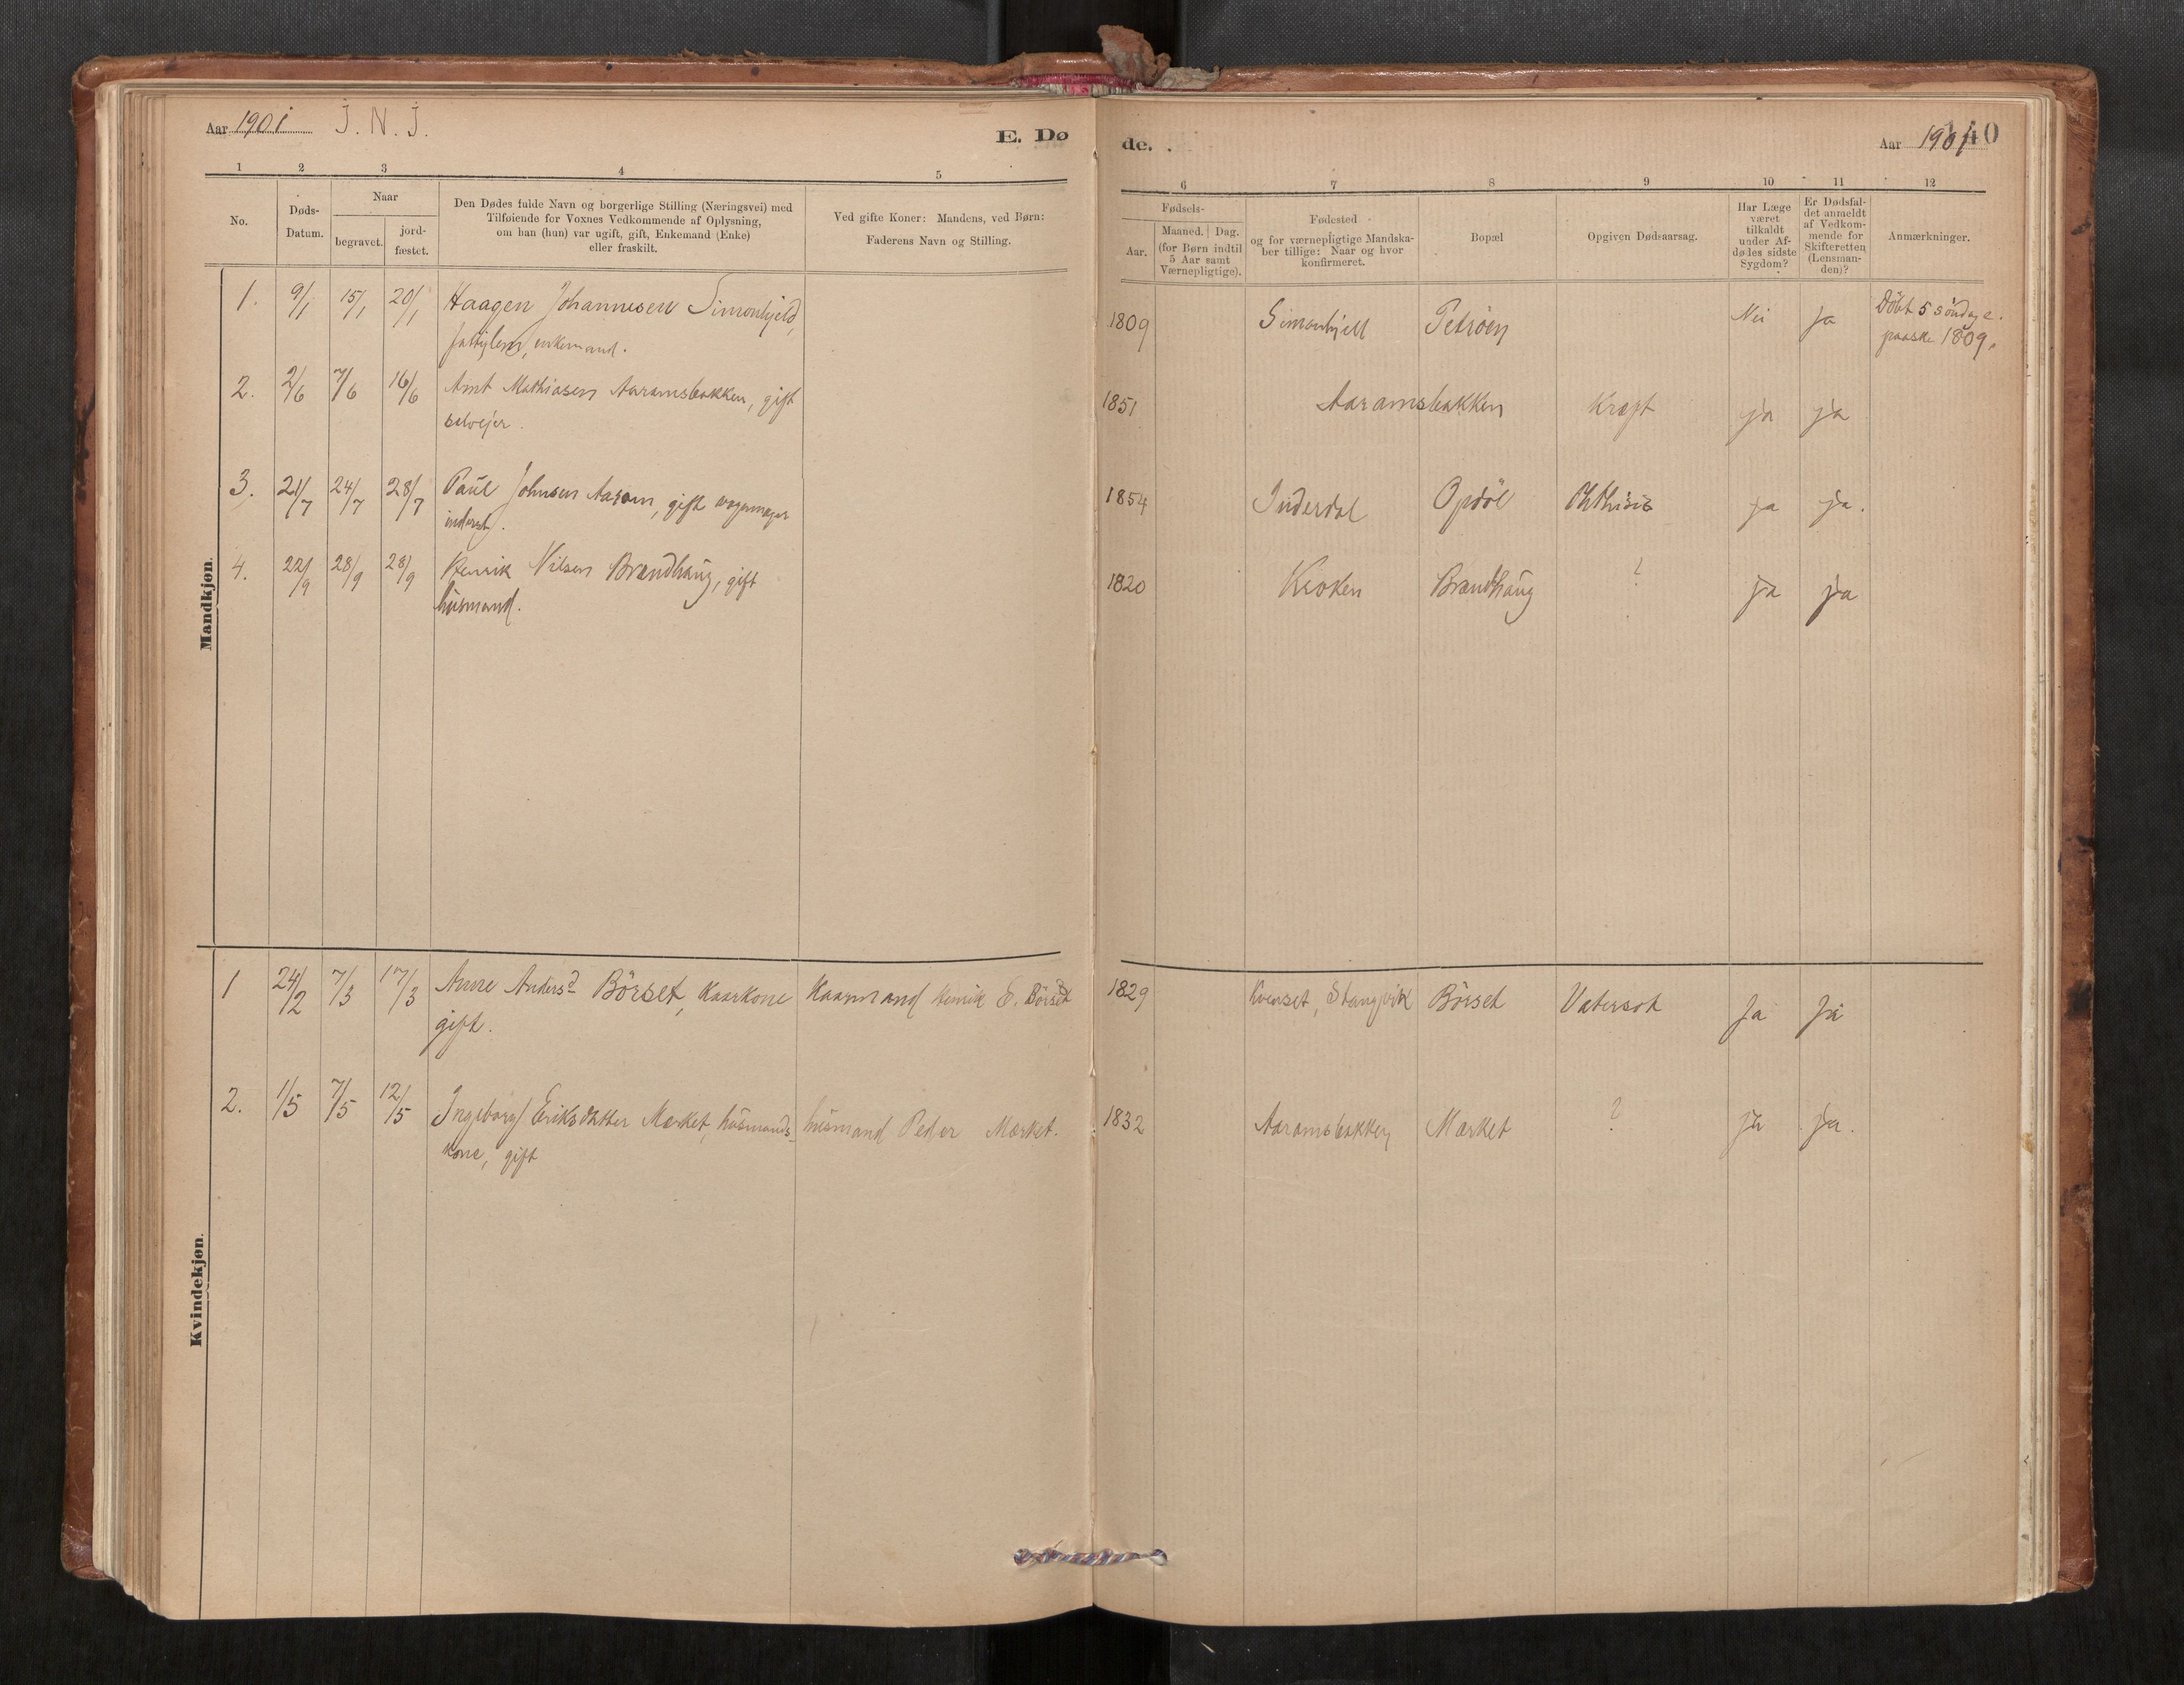 Aar 1901 J. N. J.
E. Dø
1 2 3 4 5
No.
Døds-
Datum.
Naar
begravet.
jord-
fæstet.
Den Dødes fulde Navn og borgerlige Stilling (Næringsvei) med
Tilføiende for Voxnes Vedkommende af Oplysning,
om han (hun) var ugift, gift, Enkemand (Enke)
eller fraskilt.
Ved gifte Koner: Mandens, ved Børn:
Faderens Navn og Stilling.
Mandkjøn.
1. 9/1 15/1 20/1 Haagen Johannesen Simonhjeld,
fattiglem, enkemand.
2. 2/6 7/6 16/6 Arnt Mathiasen Aaramsbakken, gift
selvejer.
3. 21/7 24/7 28/7 Paul Johnsen Aaram, gift
inderst.
4. 22/9 28/9 28/9 Henrik Nilsen Brandhaug, gift
husmand.
Kvindekjøn.
1 24/2 7/3 17/3 Anne Andersd Börset, Kaarkone Kaarmand Henrik E. Börset
gift.
2. 1/5 7/5 12/5 Ingeborg Eriksdatter Market, husmands- husmand Peder Market.
kone, gift
de.
Aar 1901
140
6 7 8 9 10 11 12
Fødsels-
Aar.
Maaned. Dag.
(for Børn indtil
5 Aar samt
Værnepligtige).
Fødested
og for værnepligtige Mandska-
ber tillige: Naar og hvor
konfirmeret.
Bopæl
Opgiven Dødsaarsag.
Har Læge
været
tilkaldt
under Af-
dødes sidste
Sygdom?
Er Dødsfal-
det anmeldt
af Vedkom-
mende for
Skifteretten
(Lensman-
den)?
Anmærkninger.
1809 Simonhjell Petröen Nei ja Döbt 5 söndag e.
paaske 1809.
1851 Aaramsbakken Kræft ja ja
1854 Inderdal Opdöl Phthisis ja ja.
1820 Kroken Brandhaug ? ja ja
1829 Kvenset, Stangvik Börset Vatersot Ja Ja
1832 Aaramsbakken Market ? ja ja.